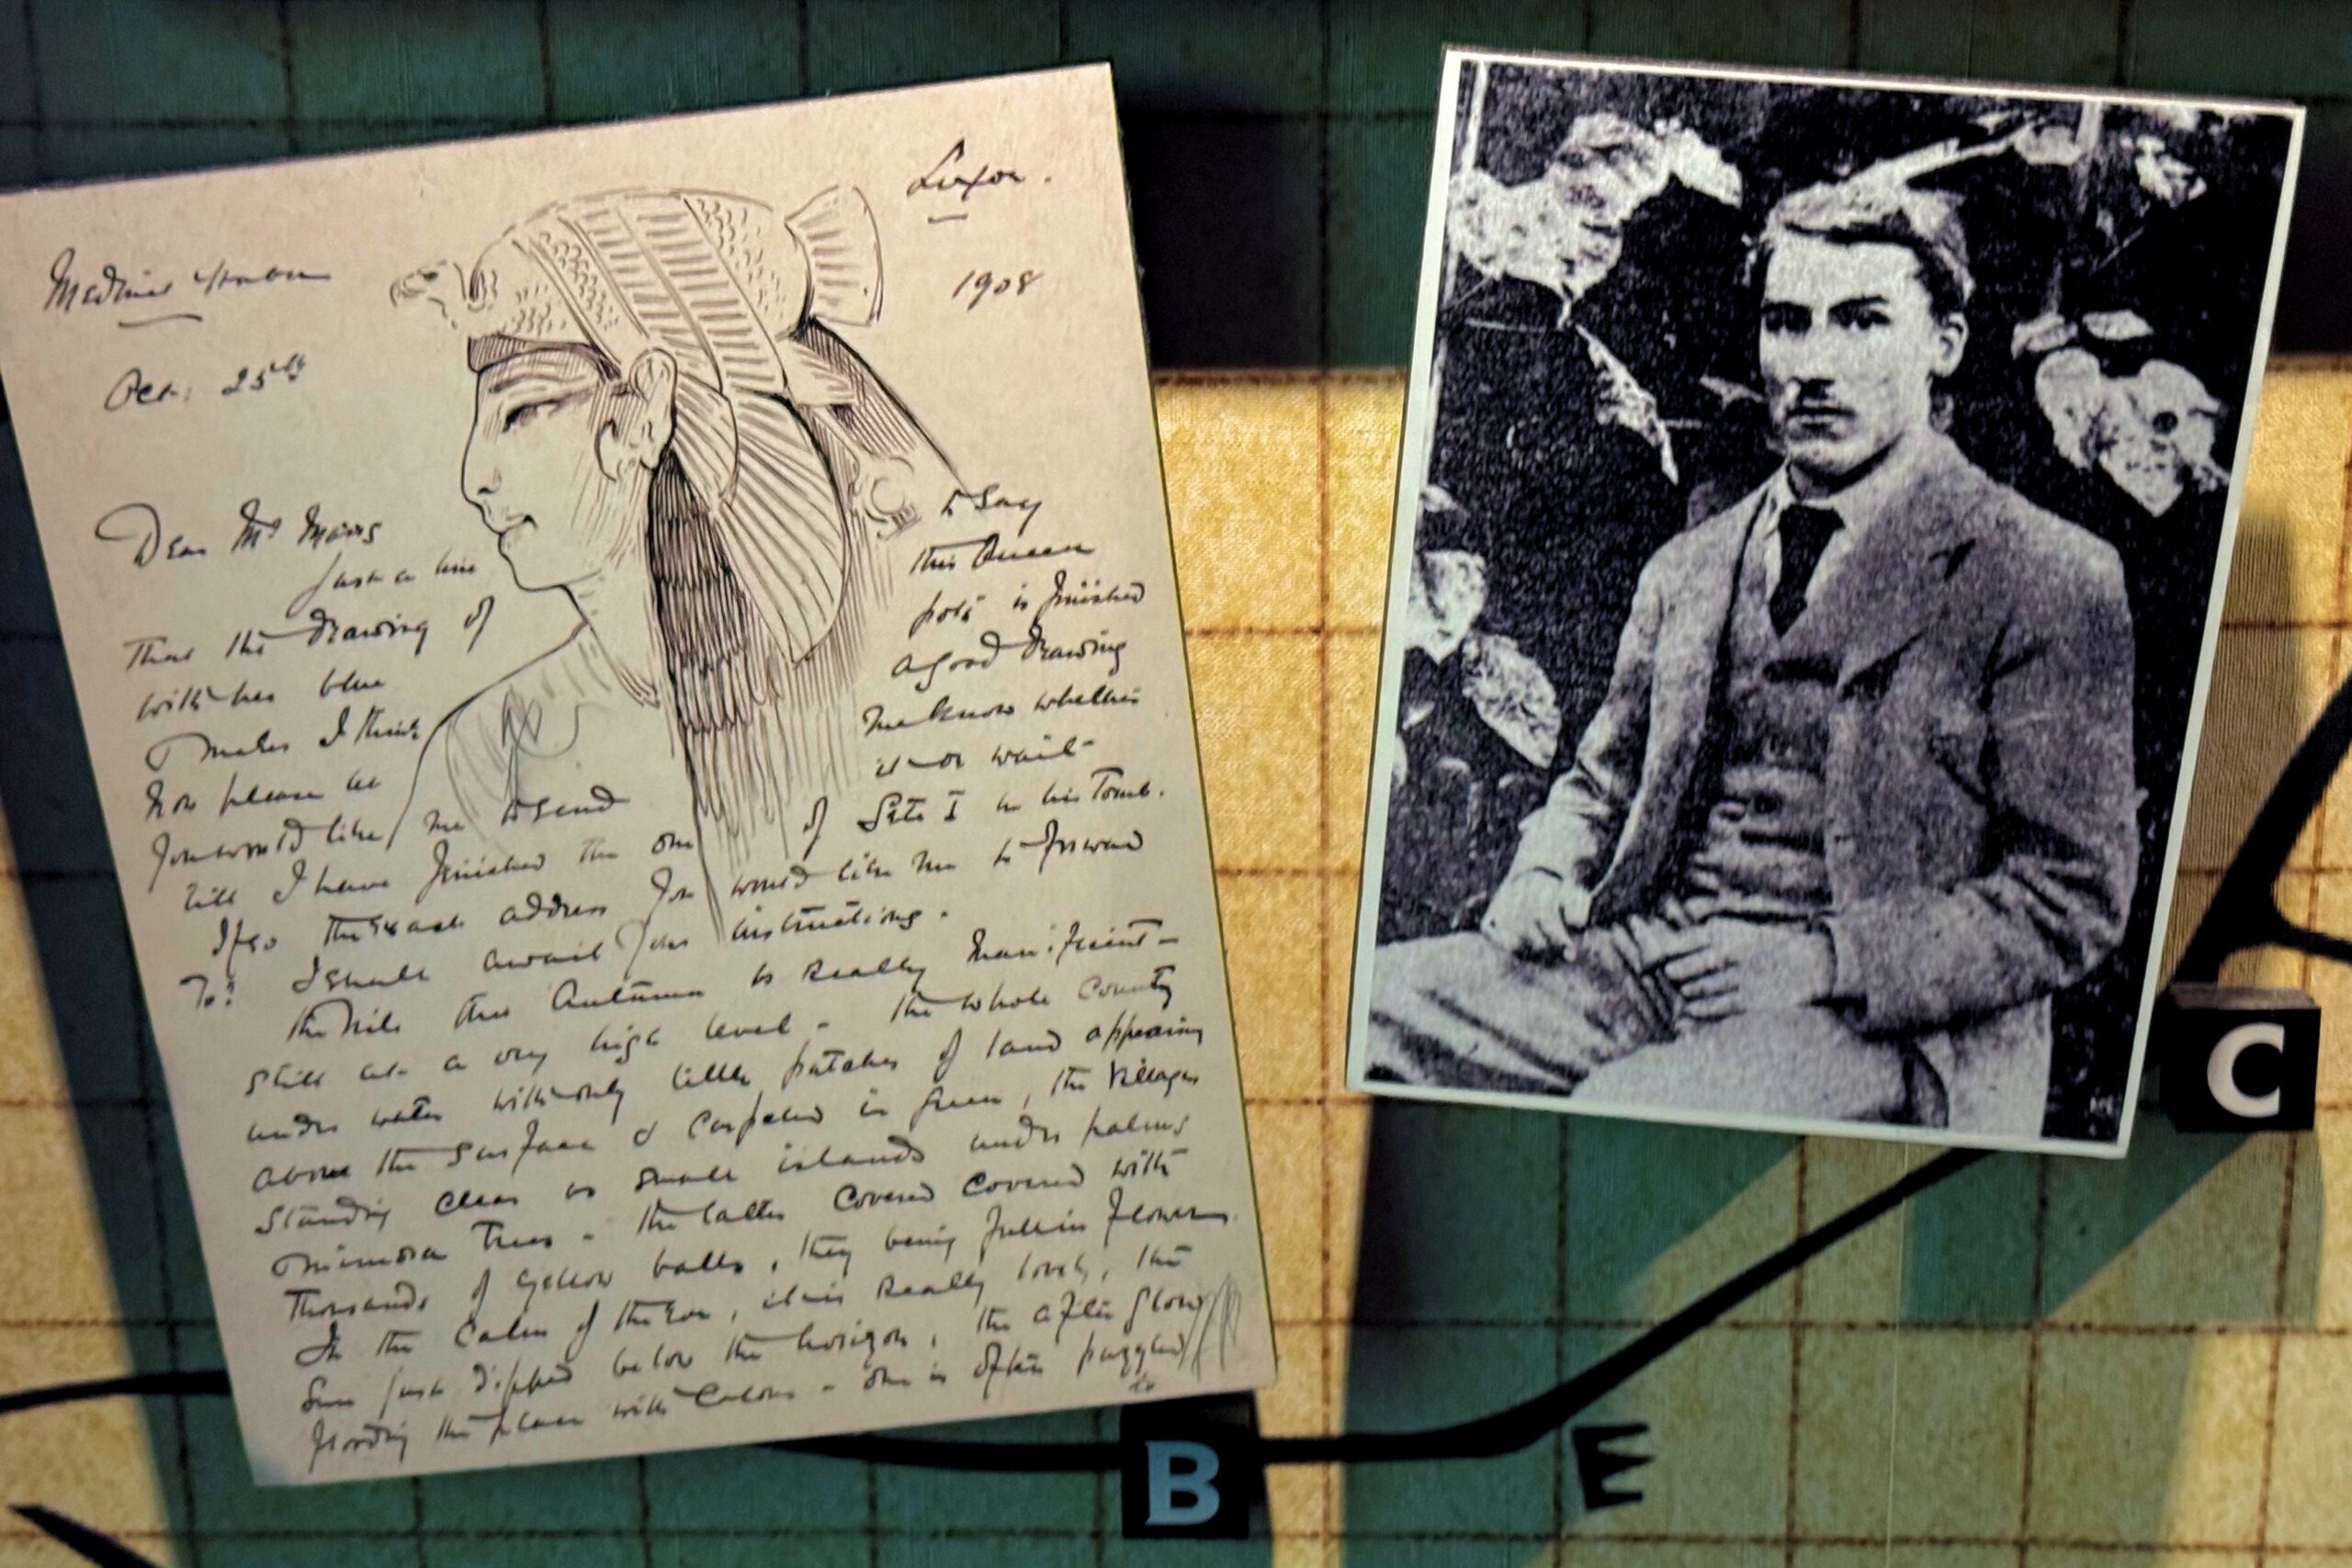 Luxor.
Medinet Habu
1908
Oct: 25th
Dear Mrs
Just a line to say
that the drawing of this Queen
with her blue pots is finished
& makes I think a good drawing
Now please let me know whether
you would like me to send it or wait
till I have finished the one of Sete I in his Tomb.
If so the exact address you would like me to forward
to? I shall await your instructions.
The Nile this Autumn is really
still at a very high level - the whole County
under water with only little patches of land appearing
above the surface & carpeted in green, the villages
standing clear as small islands under palms
mimosa trees - the latter covered covered with
thousands of yellow balls, they being full in flower.
In the calm of the Eve, it is really lovely, the
Sun just dipped below the horizon, the after glow
flooding the place with Colour - one is often puzzled
to
B
E
C